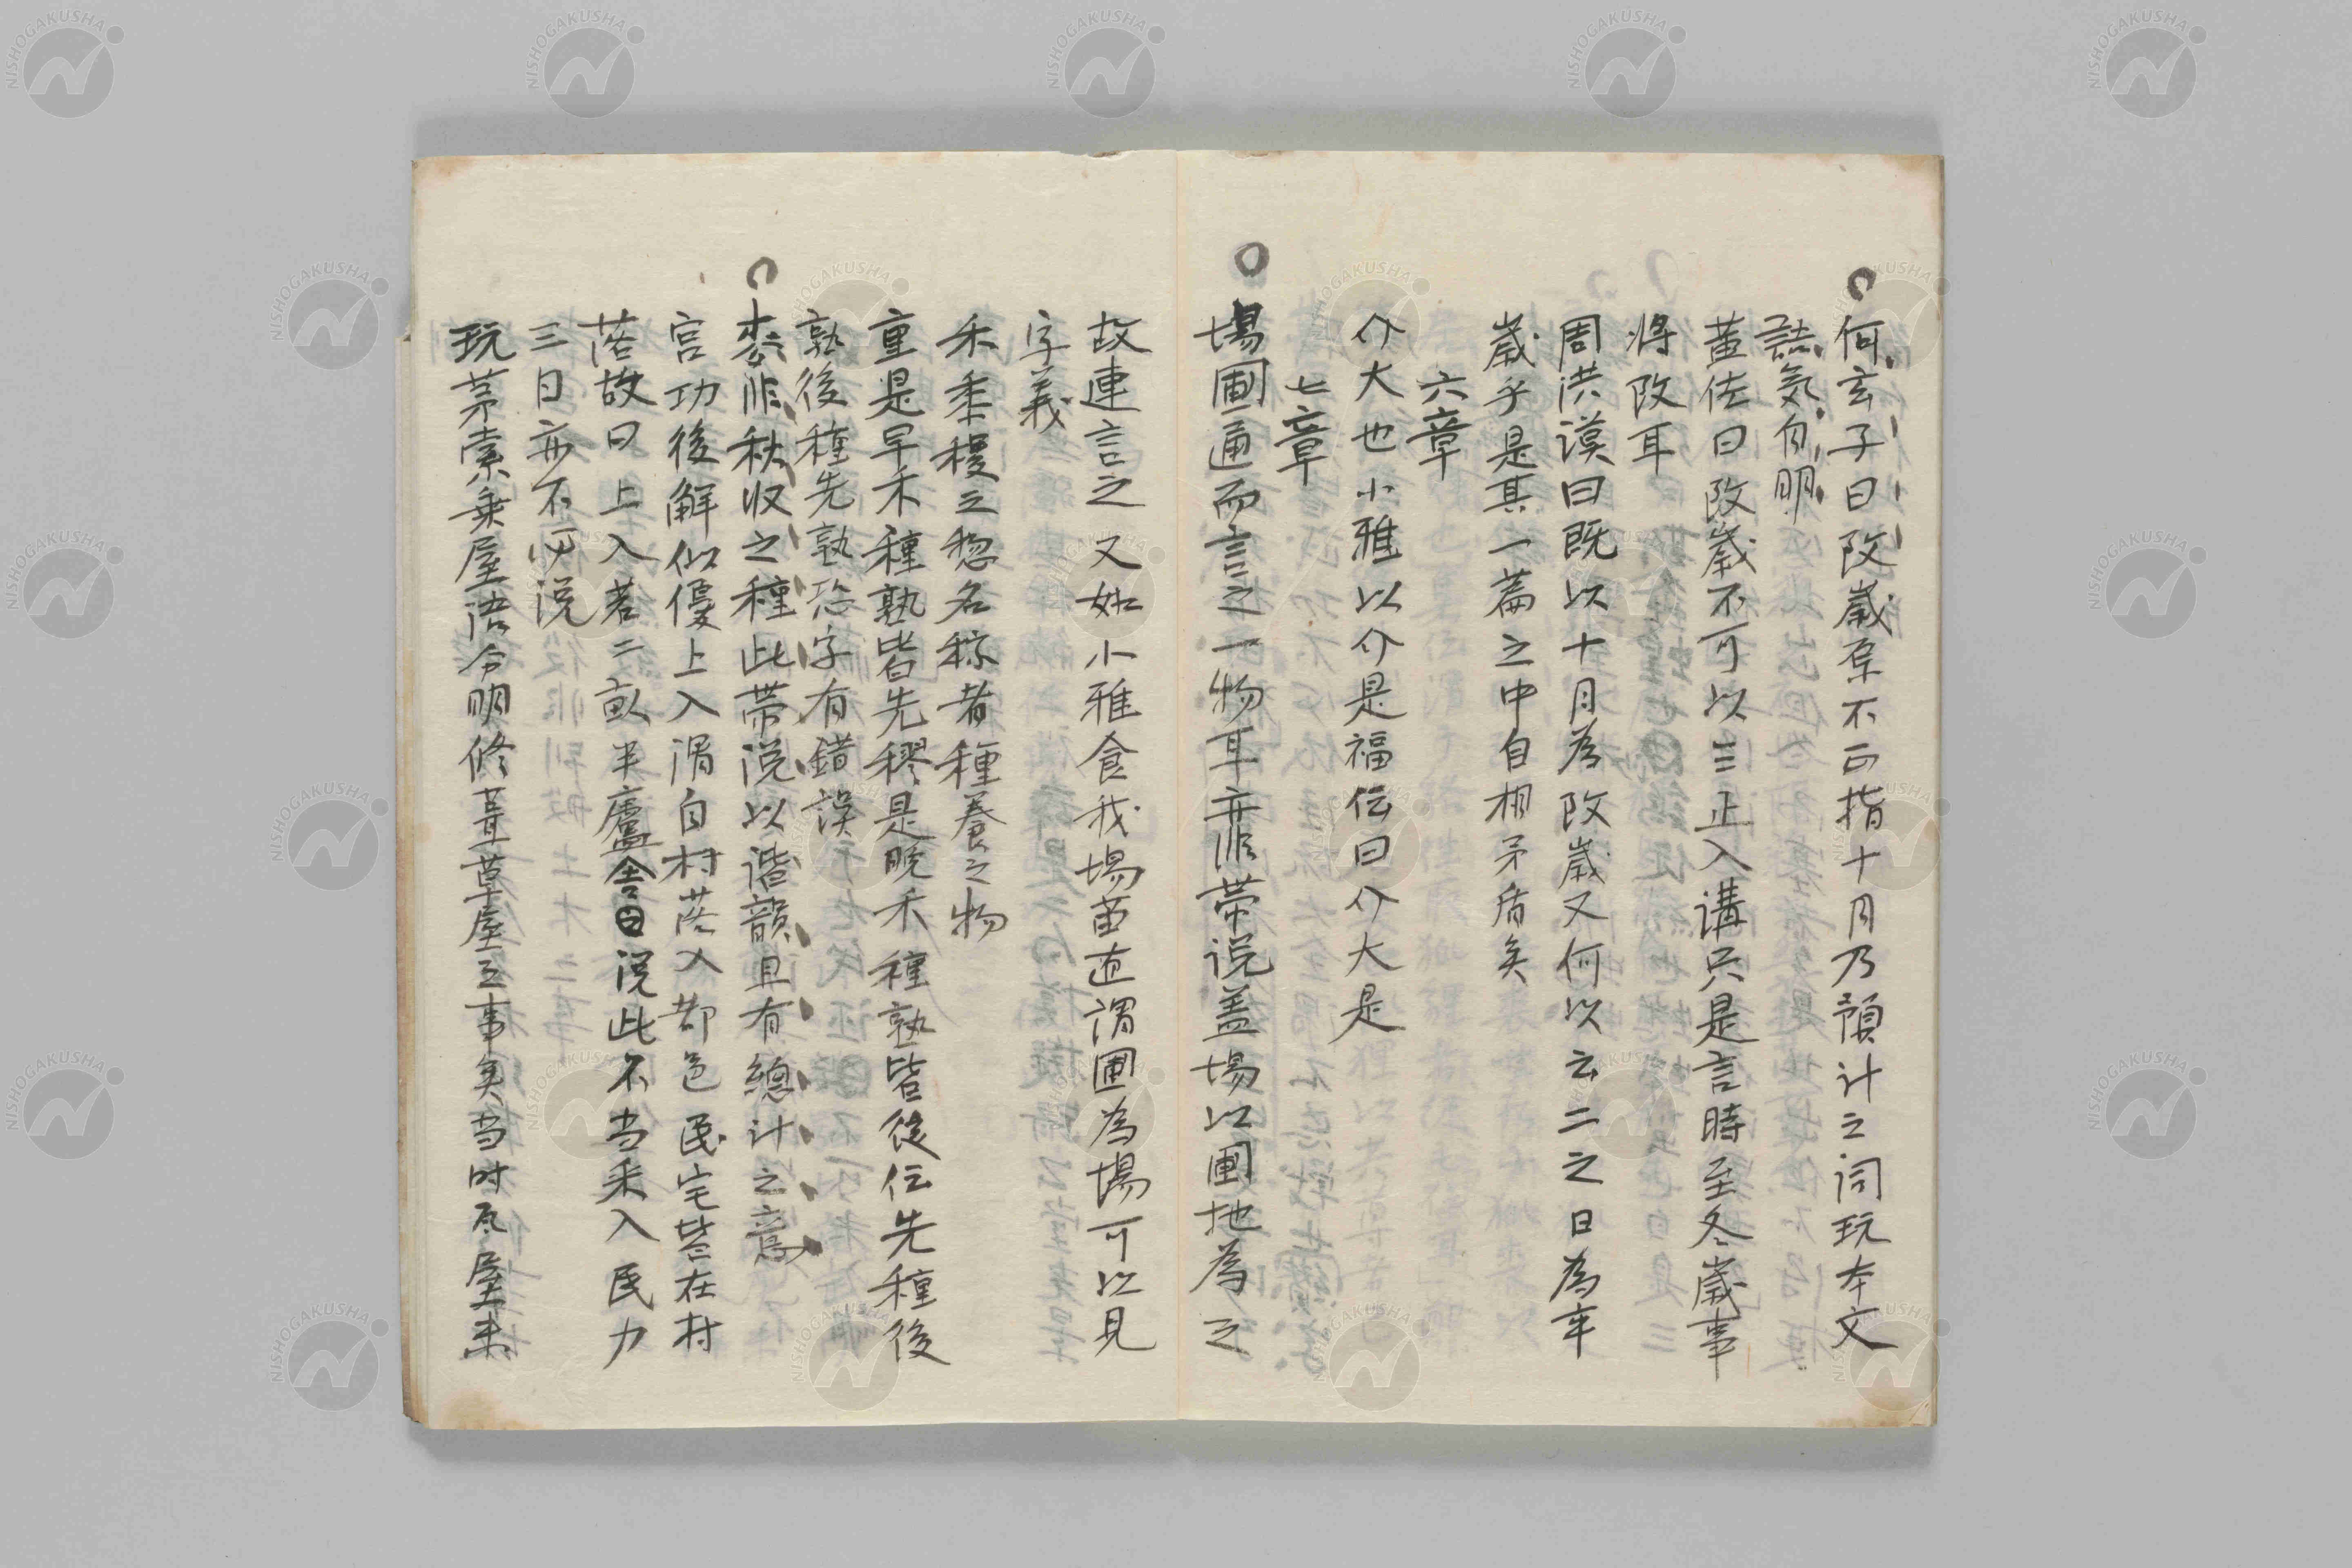 何玄子曰改歳原不正指十月乃預計之詞玩本文
語気自明
董佐曰改歳不可以三正入講只是言時至冬歳事
将改耳
周洪謨曰既以十月為改歳又何以云二之日為卒
歳乎是其一篇之中自相矛盾矣
六章
介大也小雅以介是福伝曰介大是
七章
場圃通而言之一物耳亦非帯説盖場以圃地為之
故連言之又如小雅食我場苗直謂圃為場可以見
字義
禾黍稷之惣名稼者種養之物
重是早禾種熟皆先穋是晩禾種熟皆後伝先種後
熟後種先熟恐字有錯誤
麥非秋収之種此帯説以諧韻且有總計之意
宮功後解似優上入謂自村落入都邑民宅皆在村
落故曰上入若二畝半廬舎曰説此不当采入民力
三日亦不必説
玩茅索乗屋語分明修葺草屋之事矣当时瓦屋未